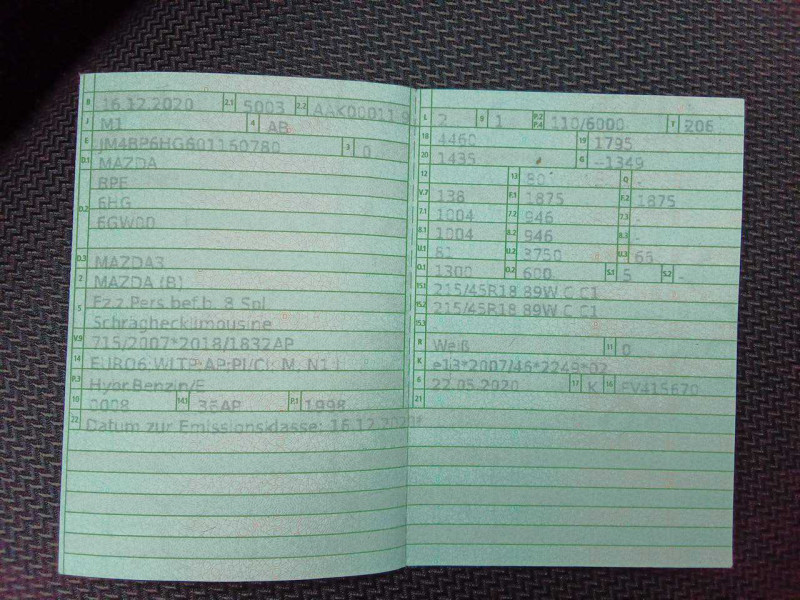 B 16.12.2020 2.1 5003 2.2 AAK00011 9
J M1 4 AB
E JM4BP6HG601150780 3 0
D.1 MAZDA
BPE
D.2 6HG
6GW00
D.3 MAZDA3
2 MAZDA (B)
5 Fz.z.Pers.bef.b. 8 Spl.
Schräghecklimousine
V.9 715/2007*2018/1832AP
14 EURO6;WLTP;AP;PI/CI; M, N1 I
P.3 Hybr.Benzin/E
10 0008 14.1 36AP P.1 1998
22 Datum zur Emissionsklasse: 16.12.2020
L 2 9 1 P.2 P.4 110/6000 T 206
18 4460 19 1795
20 1435 G 1349
12 - 13 80 Q -
V.7 136 F.1 1875 F.2 1875
7.1 1004 7.2 946 7.3 -
8.1 1004 8.2 946 8.3 -
U.1 81 U.2 3750 U.3 65
O.1 1300 O.2 600 S.1 5 S.2 -
15.1 215/45R18 89W C C1
15.2 215/45R18 89W C C1
15.3
R Weiß 11 0
K e13*2007/46*2249*02
6 22.05.2020 17 K 16
21